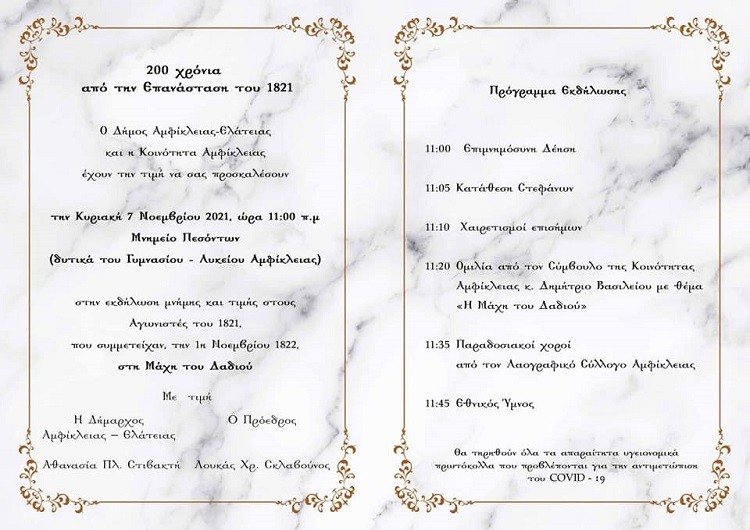 200 χρόνια
από την Επανάσταση του 1821
Ο Δήμος Αμφίκλειας-Ελάτειας
και η Κοινότητα Αμφίκλειας
έχουν την τιμή να σας προσκαλέσουν
την Κυριακή 7 Νοεμβρίου 2021, ώρα 11:00 π.μ
Μνημείο Πεσόντων
(δυτικά του Γυμνασίου - Λυκείου Αμφίκλειας)
στην εκδήλωση μνήμης και τιμής στους
Αγωνιστές του 1821,
που συμμετείχαν, την 1η Νοεμβρίου 1822,
στη Μάχη του Δαδιού
Με τιμή
Η Δήμαρχος Ο Πρόεδρος
Αμφίκλειας – Ελάτειας
Αθανασία Πλ. Στιβακτή Λουκάς Χρ. Σκλαβούνος
Πρόγραμμα Εκδήλωσης
11:00 Επιμνημόσυνη Δέηση
11:05 Κατάθεση Στεφάνων
11:10 Χαιρετισμοί επισήμων
11:20 Ομιλία από τον Σύμβουλο της Κοινότητας
Αμφίκλειας κ. Δημήτριο Βασιλείου με θέμα
«Η Μάχη του Δαδιού»
11:35 Παραδοσιακοί χοροί
από τον Λαογραφικό Σύλλογο Αμφίκλειας
11:45 Εθνικός Ύμνος
Θα τηρηθούν όλα τα απαραίτητα υγειονομικά
πρωτόκολλα που προβλέπονται για την αντιμετώπιση
του COVID - 19